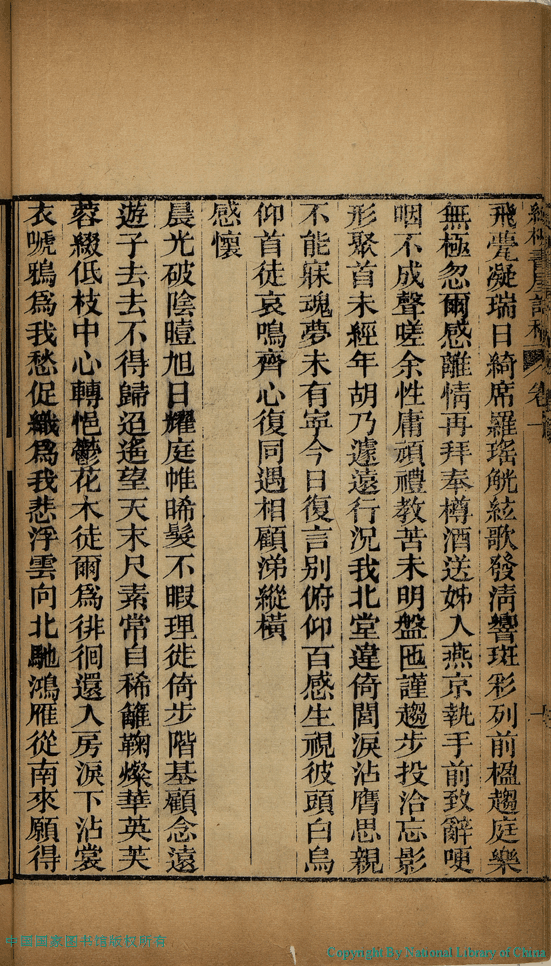 書屋詩稿 卷一
飛甍凝瑞日綺席羅瑤觥絃歌發淸響斑彩列前楹趨庭樂
無極忽爾感離情再拜奉樽酒送姊入燕京執手前致辭哽
咽不成聲嗟余性庸頑禮教苦未明盤匜謹趨步投洽忘影
形聚首未經年胡乃遽遠行況我北堂違倚閭淚沾膺思親
不能寐魂夢未有寧今日復言別俯仰百感生視彼頭白烏
仰首徒哀鳴齊心復同遇相顧涕縱橫
感懷
晨光破陰曀旭日耀庭帷晞髮不暇理徙倚步階基顧念遠
遊子去去不得歸迢遙望天末尺素常自稀籬鞠燦華英芙
蓉綴低枝中心轉悒鬱花木徒爾爲徘徊還入房淚下沾裳
衣嗁鴉爲我愁促織爲我悲浮雲向北馳鴻雁從南來願得
中國國家圖書館版权所有
Copyright By National Library of China